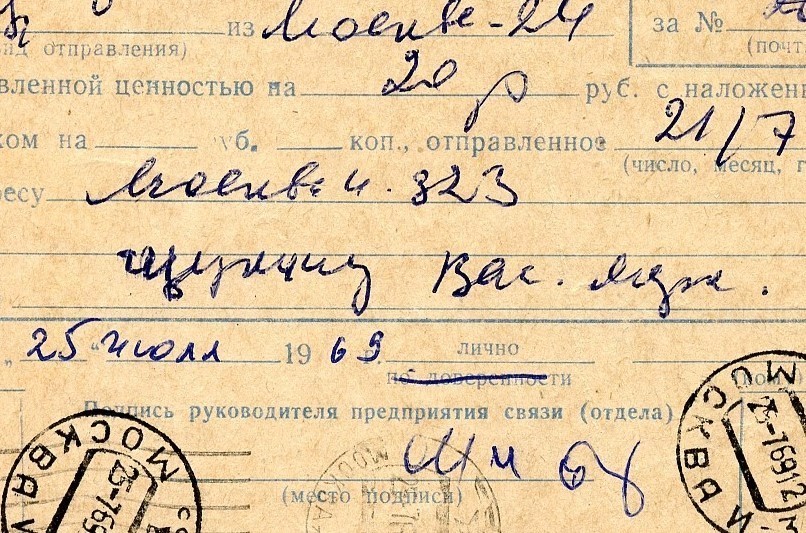 из Москве-24 за №
вид отправления) (почт
вленной ценностью на 20 р руб. с наложен
ком на руб. коп., отправленное 21/7
(число, месяц, г
ресу Москве и. 323
Вас.
„25“ июля 1969 лично
по доверенности
Подпись руководителя предприятия связи (отдела)
(место подписи)
МОСКВА
25-769
МОСКВА
МОСКВА
25-76912